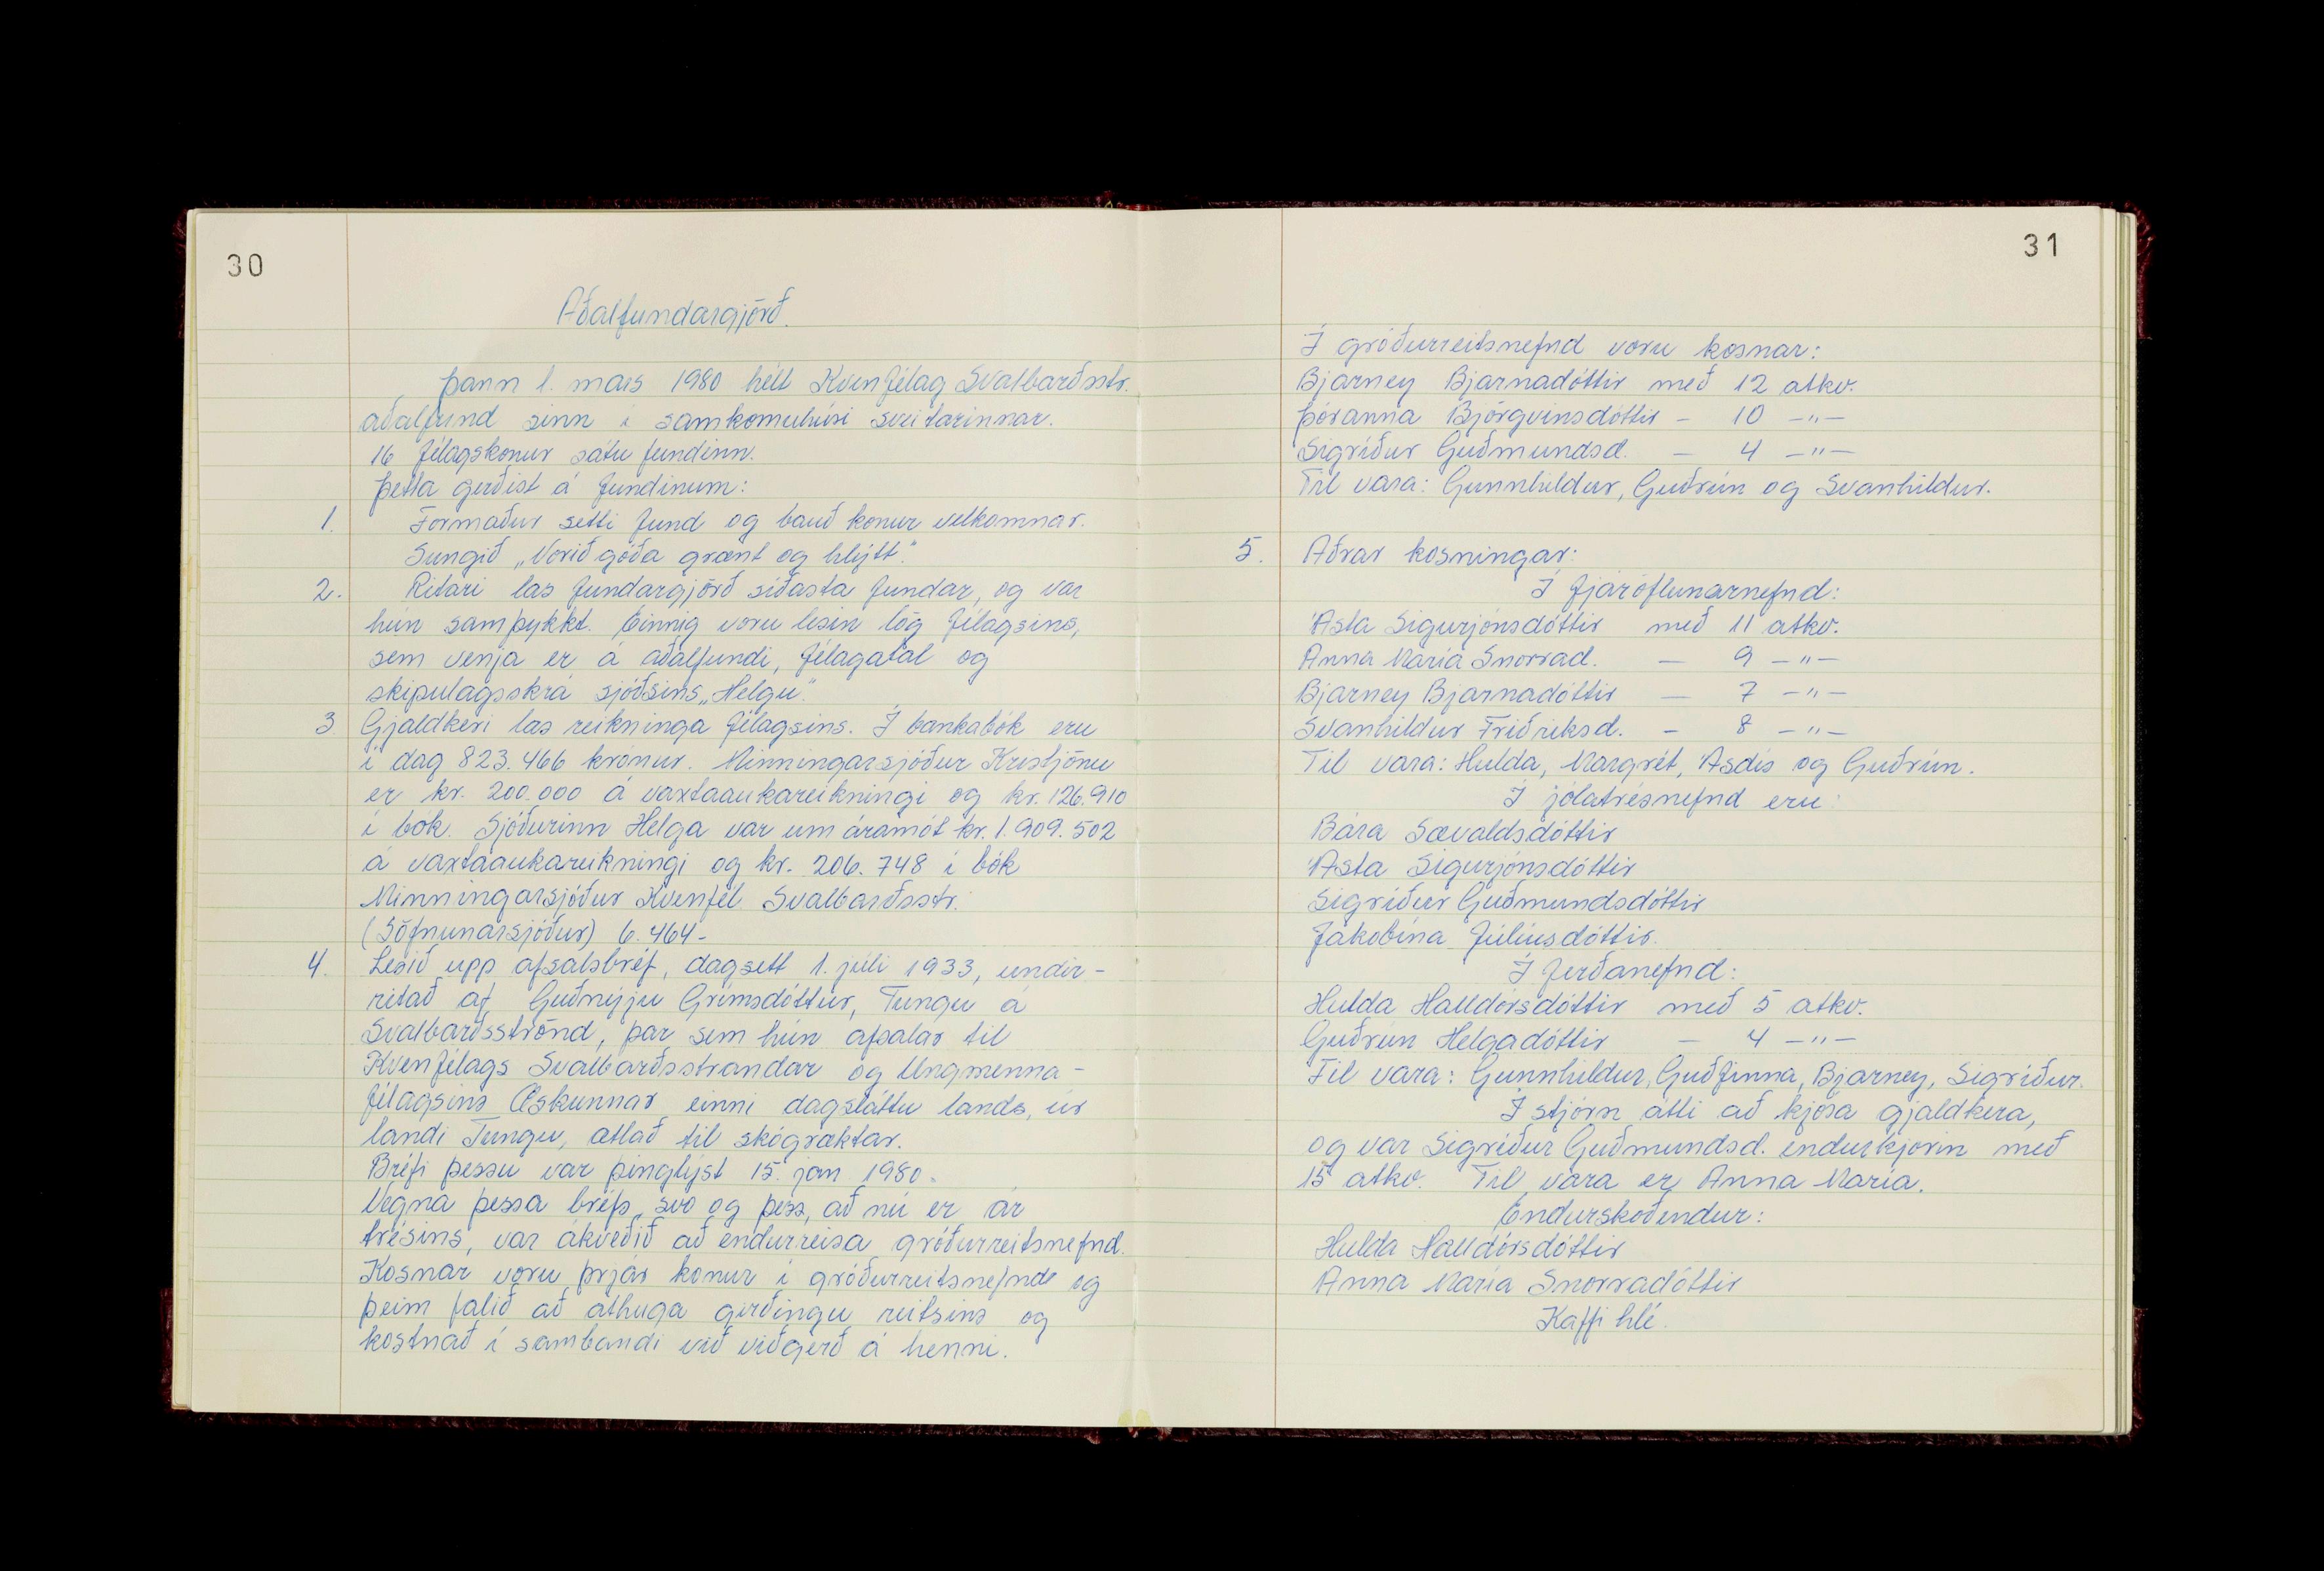 30
Aðalfundargjörð.
Þann 1. mars 1980 hélt Kvenfélag Svalbarðsstr.
aðalfund sinn í samkomuhúsi sveitarinnar.
16 félagskonur sátu fundinn.
Þetta gerðist á fundinum:
1. Formaður setti fund og bauð konur velkomnar.
Sungið „Vorið góða grænt og hlýtt."
2. Ritari las fundargjörð síðasta fundar, og var
hún samþykkt. Einnig voru lesin lög félagsins,
sem venja er á aðalfundi, félagatal og
skipulagsskrá sjóðsins „Helgu".
3 Gjaldkeri las reikninga félagsins. Í bankabók eru
í dag 823.466 krónur. Minningarsjóður Kristjönu
er kr. 200.000 á vaxtaaukareikningi og kr. 126.910
í bók. Sjóðurinn Helga var um áramót kr. 1.909.502
á vaxtaaukareikningi og kr. 206.748 í bók
Minningarsjóður Kvenfél. Svalbarðsstr.
(Söfnunarsjóður) 6.464-
4. Lesið upp afsalsbréf, dagsett 1. júlí 1933, undir-
ritað af Guðnýju Grímsdóttur, Tungu á
Svalbarðsströnd, þar sem hún afsalar til
Kvenfélags Svalbarðsstrandar og Ungmenna-
félagsins Æskunnar einni dagsláttu lands, úr
landi Tungu, ætlað til skógræktar.
Bréfi þessu var þinglýst 15. jan 1980.
Vegna þessa bréfs, svo og þess, að nú er ár
trésins, var ákveðið að endurreisa gróðurreitsnefnd.
Kosnar voru þrjár konur í gróðurreitsnefnd og
þeim falið að athuga girðingu reitsins og
kostnað í sambandi við viðgerð á henni.
31
Í gróðurreitsnefnd voru kosnar:
Bjarney Bjarnadóttir með 12 atkv.
Þóranna Björgvinsdóttir - 10 -"-
Sigríður Guðmundsd. - 4 -"-
Til vara: Gunnhildur, Guðrún og Svanhildur.
5. Aðrar kosningar:
Í fjáröflunarnefnd:
Ásta Sigurjónsdóttir með 11 atkv.
Anna María Snorrad. - 9 -"-
Bjarney Bjarnadóttir - 7 -"-
Svanhildur Friðriksd. - 8 -"-
Til vara: Hulda, Margrét, Ásdís og Guðrún.
Í jólatrésnefnd eru:
Bára Sævaldsdóttir
Ásta Sigurjónsdóttir
Sigríður Guðmundsdóttir
Jakobína Júlíusdóttir.
Í ferðanefnd:
Hulda Halldórsdóttir með 5 atkv.
Guðrún Helgadóttir - 4 -"-
Til vara: Gunnhildur, Guðfinna, Bjarney, Sigríður.
Í stjórn átti að kjósa gjaldkera,
og var Sigríður Guðmundsd. endurkjörin með
15 atkv. Til vara er Anna María.
Endurskoðendur:
Hulda Halldórsdóttir
Anna María Snorradóttir
Kaffi hlé.